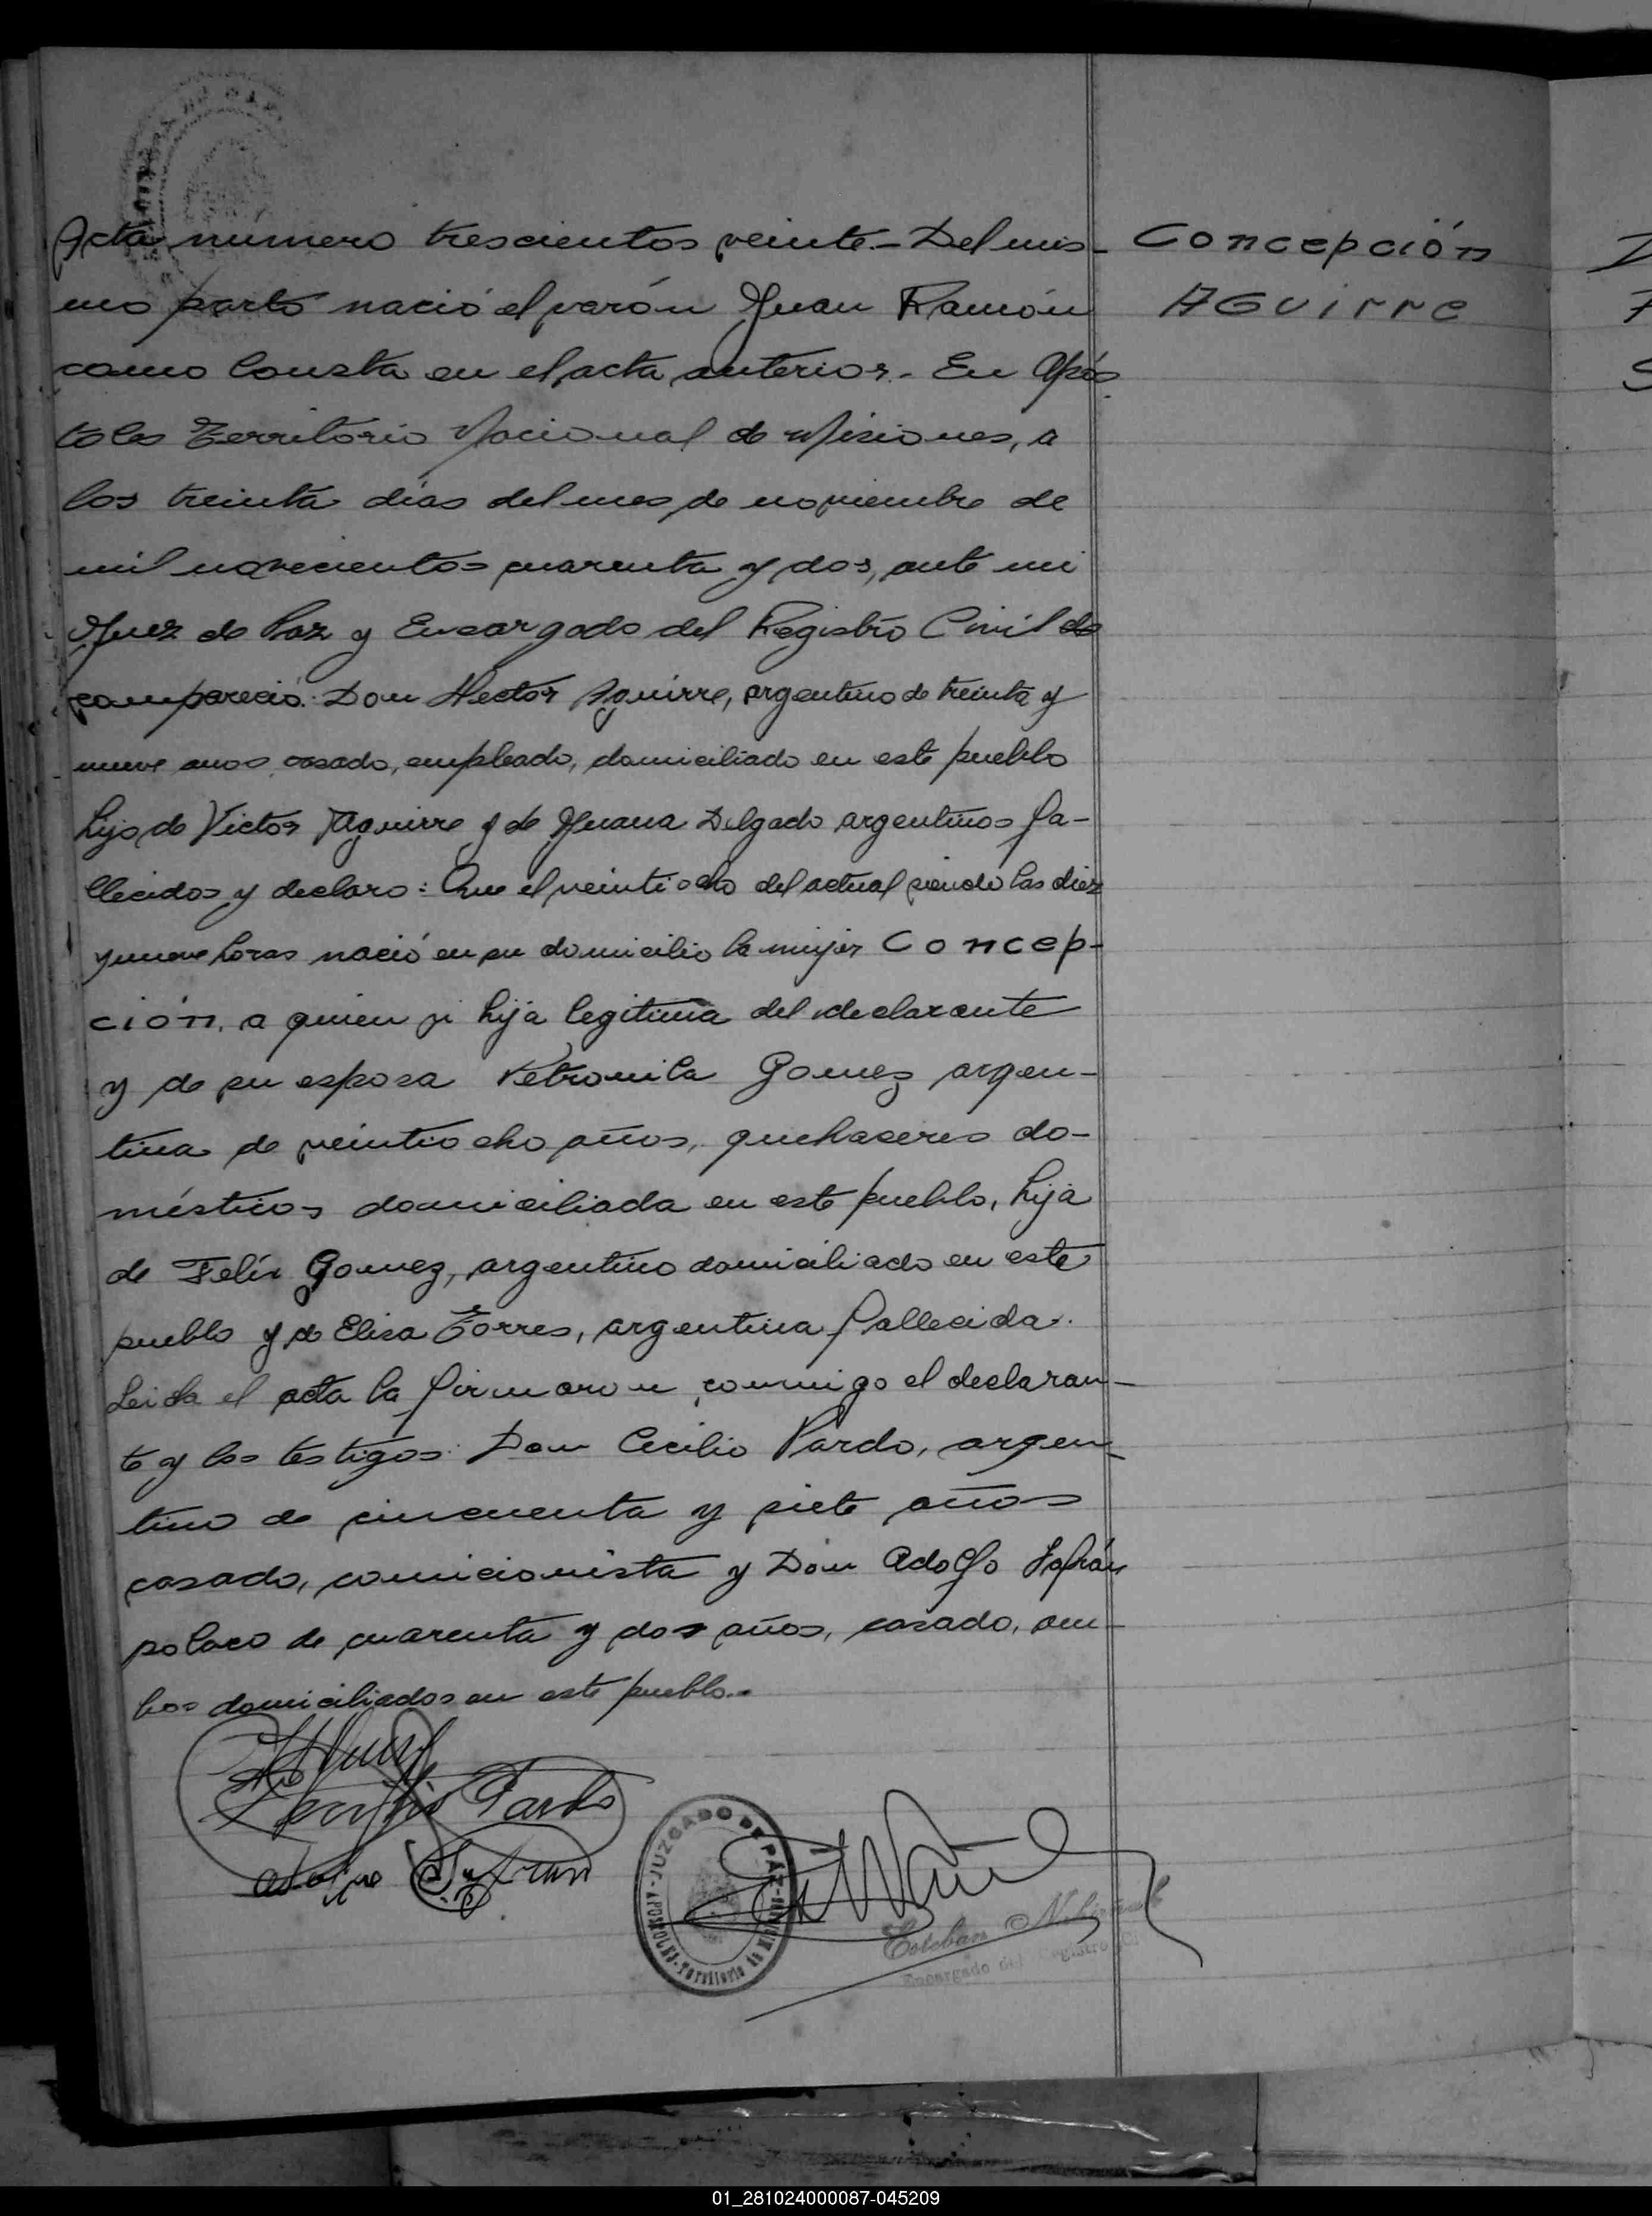 Acta número trescientos veinte.- Del mis-
mo parto nació el varón Juan Ramón
como consta en el acta anterior.- En Após
toles Territorio Nacional de Misiones, a
los treinta días del mes de noviembre de
mil novecientos cuarenta y dos, ante mi
Juez de Paz y Encargado del Registro Civil de
compareció: Don Hector Aguirre, argentino de treinta y
nueve anos, casado, empleado, domiciliado en este pueblo
hijo de Victor Aguirre y de Juana Delgado argentinos fa-
llecidos y declaro: Que el veintiocho del actual siendo las diez
y nueve horas nació en su domicilio la mujer Concep-
ción, a quien vi hija legitima del declarante
y de su esposa Petronila Gomez argen-
tina de veintiocho años, quehaceres do-
mésticos domiciliada en este pueblo, hija
de Felix Gomez, argentino domiciliado en este
pueblo y de Elisa Torres, argentina fallecida.
Leida el acta la firmaron conmigo el declaran-
te y los testigos: Don Cecilio Pardo, argen-
tino de cincuenta y siete años
casado, comicionista y Don Adolfo Safrán
polaco de cuarenta y dos años, casado, am-
bos domiciliados en este pueblo.-
Concepción
AGUIRRE
Cecilio Pardo
Adolfo Safran
JUZGADO DE PAZ
APOSTOLES - Territorio de Misiones
Esteban
Encargado del Registro
01_281024000087-045209